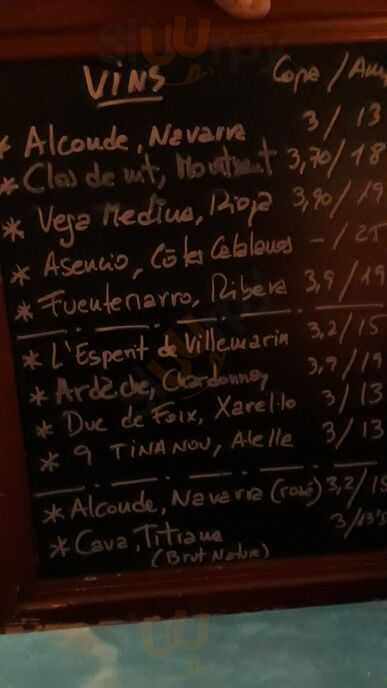 VINS Copa / Am
* Alcoude, Navarra 3 / 13
* Clos de nit, Montsant 3,70 / 18
* Vega Medius, Rioja 3,90 / 19
* Asencio, Côtes Catalanes - / 25
* Fuentenarro, Ribera 3,9 / 19
* L'Esperit de Villemarin 3,2 / 15
* Ardèche, Chardonnay 3,9 / 19
* Duc de Foix, Xarel·lo 3 / 13
* 9 TINANOU, Alella 3 / 13
* Alcoude, Navarra (rosé) 3,2 / 15
* Cava, Titiana 3 / 13'5
(Brut Nature)
Sluurpy